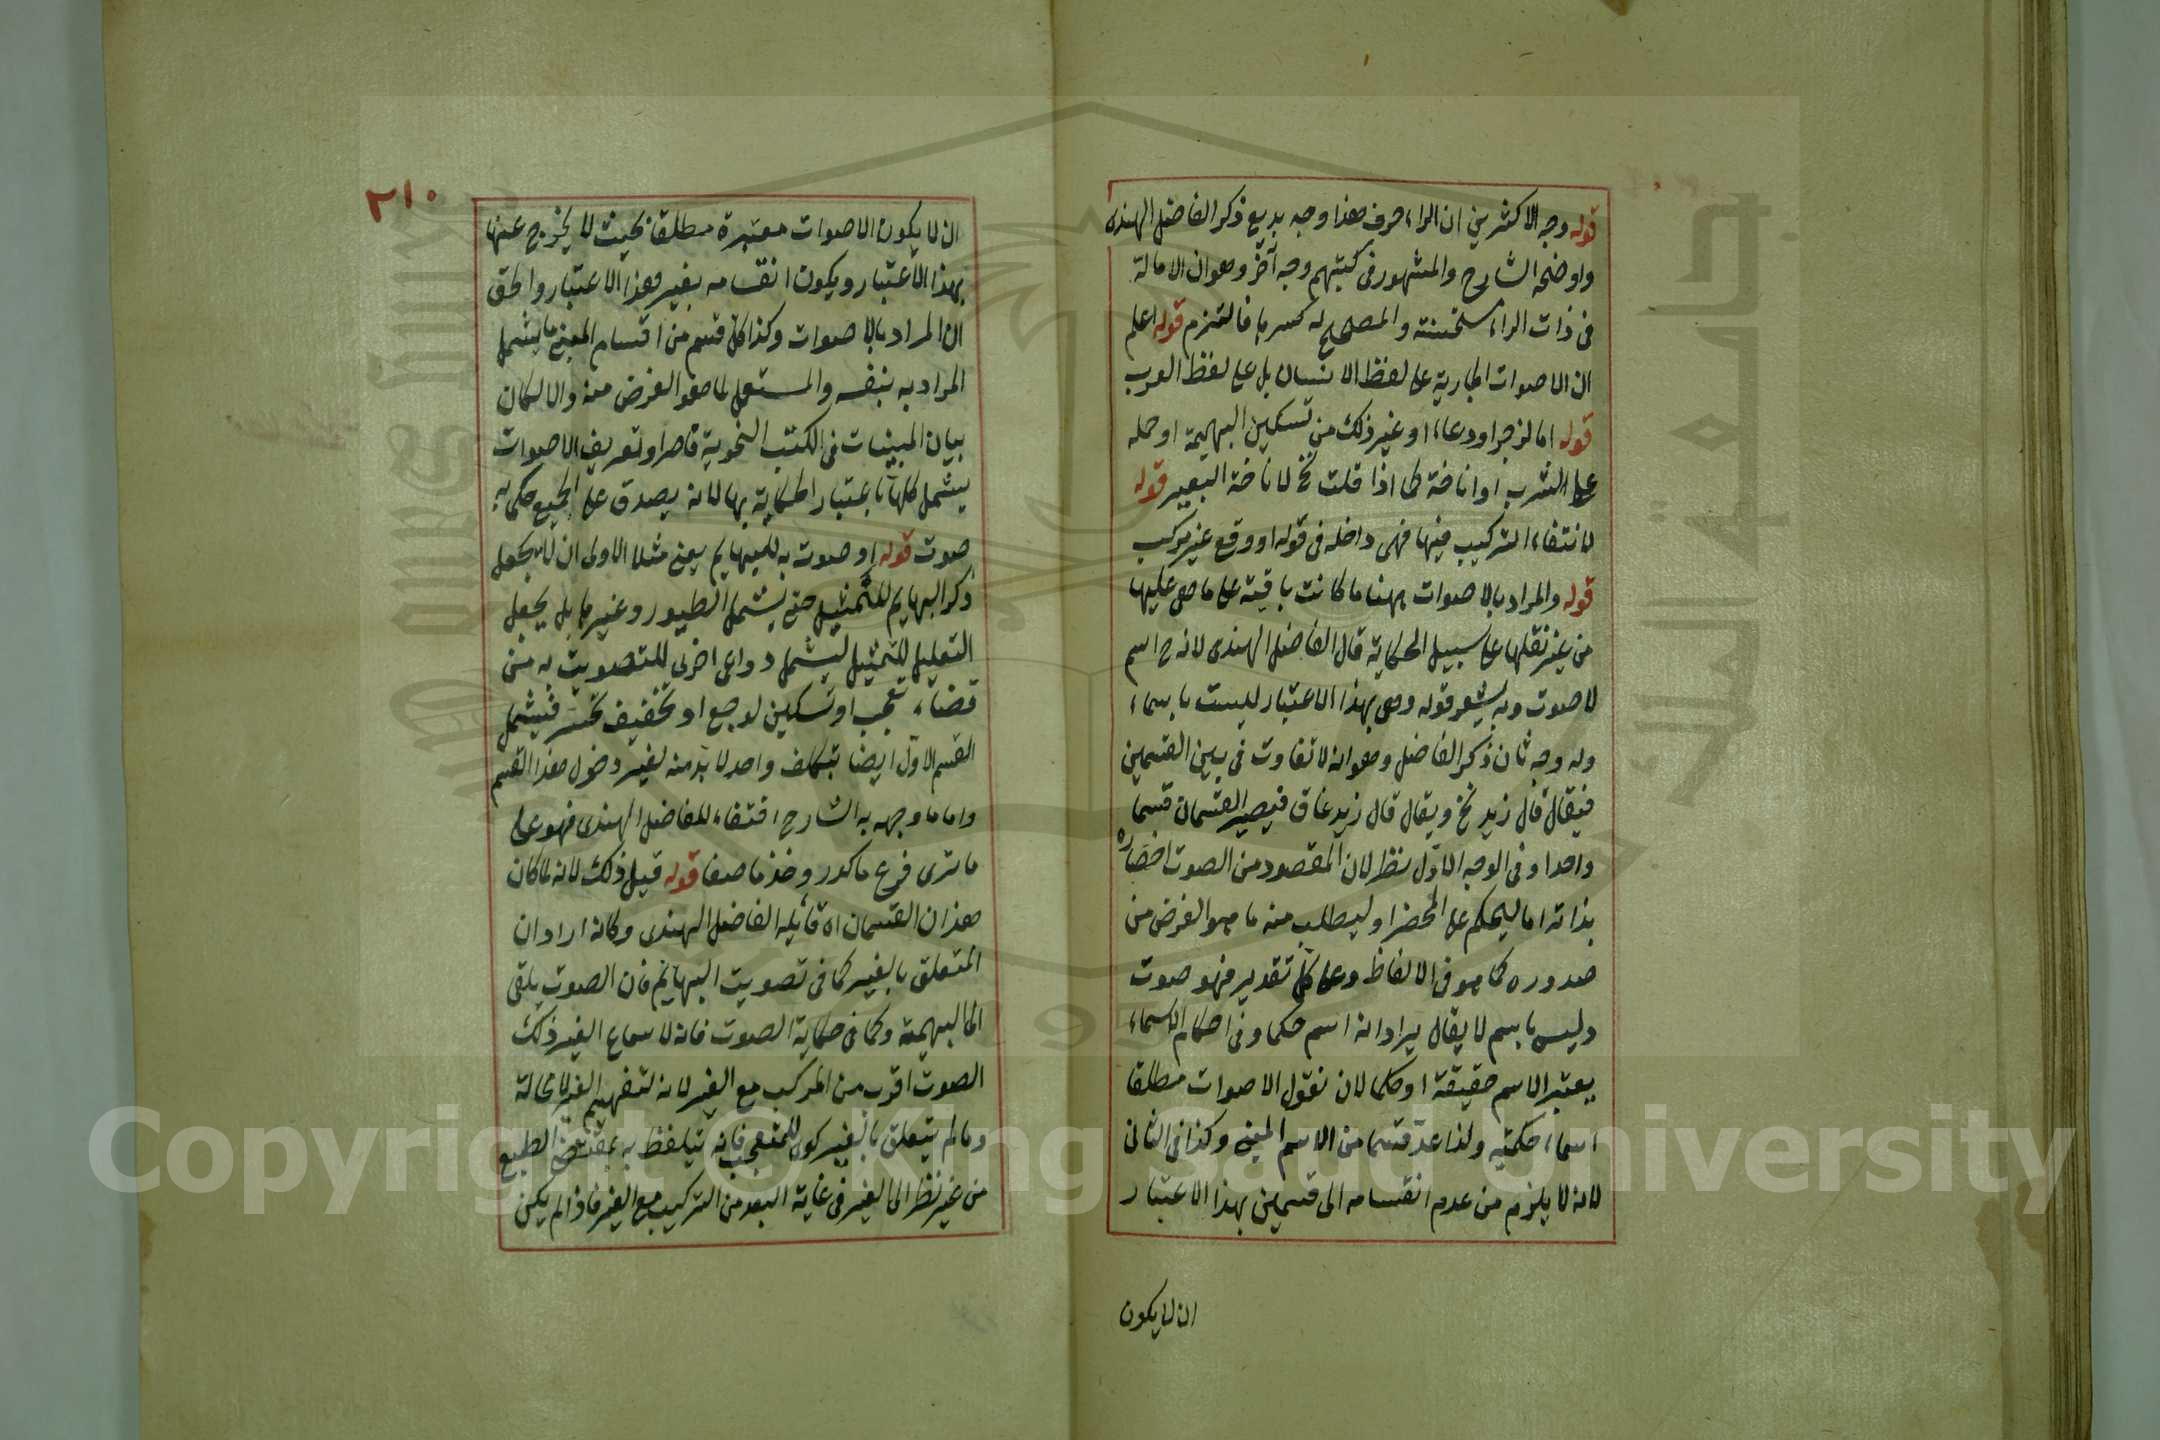 قوله وجه الاكثرين ان الراء حرف هذا وجه بديع ذكر الفاضل الهندى
واوضحه الشارح والمشهور فى كتبهم وجه آخر وهو ان الامالة
فى ذات الراء مستحسنة والمصحح له كسرها فالتزم قوله اعلم
ان الاصوات الجارية على لفظ الانسان بل على لفظ العرب
قوله اما لزجر او دعاء او غير ذلك من تسكين البهيمة او حمله
على الشرب او اناخة كما اذا قلت نخ لاناخة البعير قوله
لانتفاء التركيب فيها فهى داخله فى قوله او وقع غير مركب
قوله والمراد بالاصوات ههنا ما كانت باقية على ما هى عليها
من غير نقلها على سبيل الحكاية قال الفاضل الهندى لانه ح اسم
لا صوت وبه يشعر قوله وهى بهذا الاعتبار ليست باسماء
وله وجه ثان ذكر الفاضل وهو انه لا تفاوت فى بين القسمين
فيقال قال زيد نخ ويقال قال زيد غاق فيصير القسمان قسما
واحدا وفى الوجه الاول نظر لان المقصود من الصوت احضاره
بذاته اما ليحكم على المحضر او ليطلب منه ما هو الغرض من
صدوره كما هو فى الالفاظ وعلى كل تقدير فهو صوت
وليس باسم لا يقال يراد انه اسم حكما وفى احكام الاسماء
يعتبر الاسم حقيقة او حكما لان نقول الاصوات مطلقا
اسماء حكمية ولذا عد قسما من الاسم المبنى وكذا فى الثانى
لانه لا يلزم من عدم انقسامه الى قسمين بهذا الاعتبار
ان لا يكون
٢١٠
ان لا يكون الاصوات معتبرة مطلقا بحيث لا يخرج عنها
بهذا الاعتبار ويكون انقسامه بغير هذا الاعتبار والحق
ان المراد بالاصوات وكذا كل قسم من اقسام المبنى ما يشمل
المراد به بنفسه والمستعمل لما هو الغرض منه والا لكان
بيان المبنيات فى الكتب النحوية قاصرا وتعريف الاصوات
يشمل كلها باعتبار الحكاية بها لانه يصدق على الجميع حكى به
صوت قوله او صوت به للبهايم يعنى مثلا الاولى ان لا يجعل
ذكر البهايم للتمثيل حتى يشمل الطيور وغيرها بل يجعل
التعليل للتمثيل ليشمل دواعى اخرى للتصويت به من
قضاء تعجب او تسكين لوجع او تخفيف تحسر فيشمل
القسم الاول ايضا بتكلف واحد لا بد منه لغير دخول هذا القسم
واما ما وجهه به الشارح اقتفاء للفاضل الهندى فهو على
ما ترى فدع ما كدر وخذ ما صفا قوله قيل ذلك لانه لما كان
هذان القسمان اه قائله الفاضل الهندى وكانه اراد ان
المتعلق بالغير كما فى تصويت البهائم فان الصوت يلقى
الى البهيمة وكما فى حكاية الصوت فانه لاسماع الغير ذلك
الصوت اقرب من المركب مع الغير لانه لتفهيم الغير لا محالة
وما لم يتعلق بالغير كوى للمتعجب فانه يتلفظ به بمقتضى الطبع
من غير نظر الى الغير فى غاية البعد من التركيب مع الغير فاذا لم يكن
Copyright © King Saud University